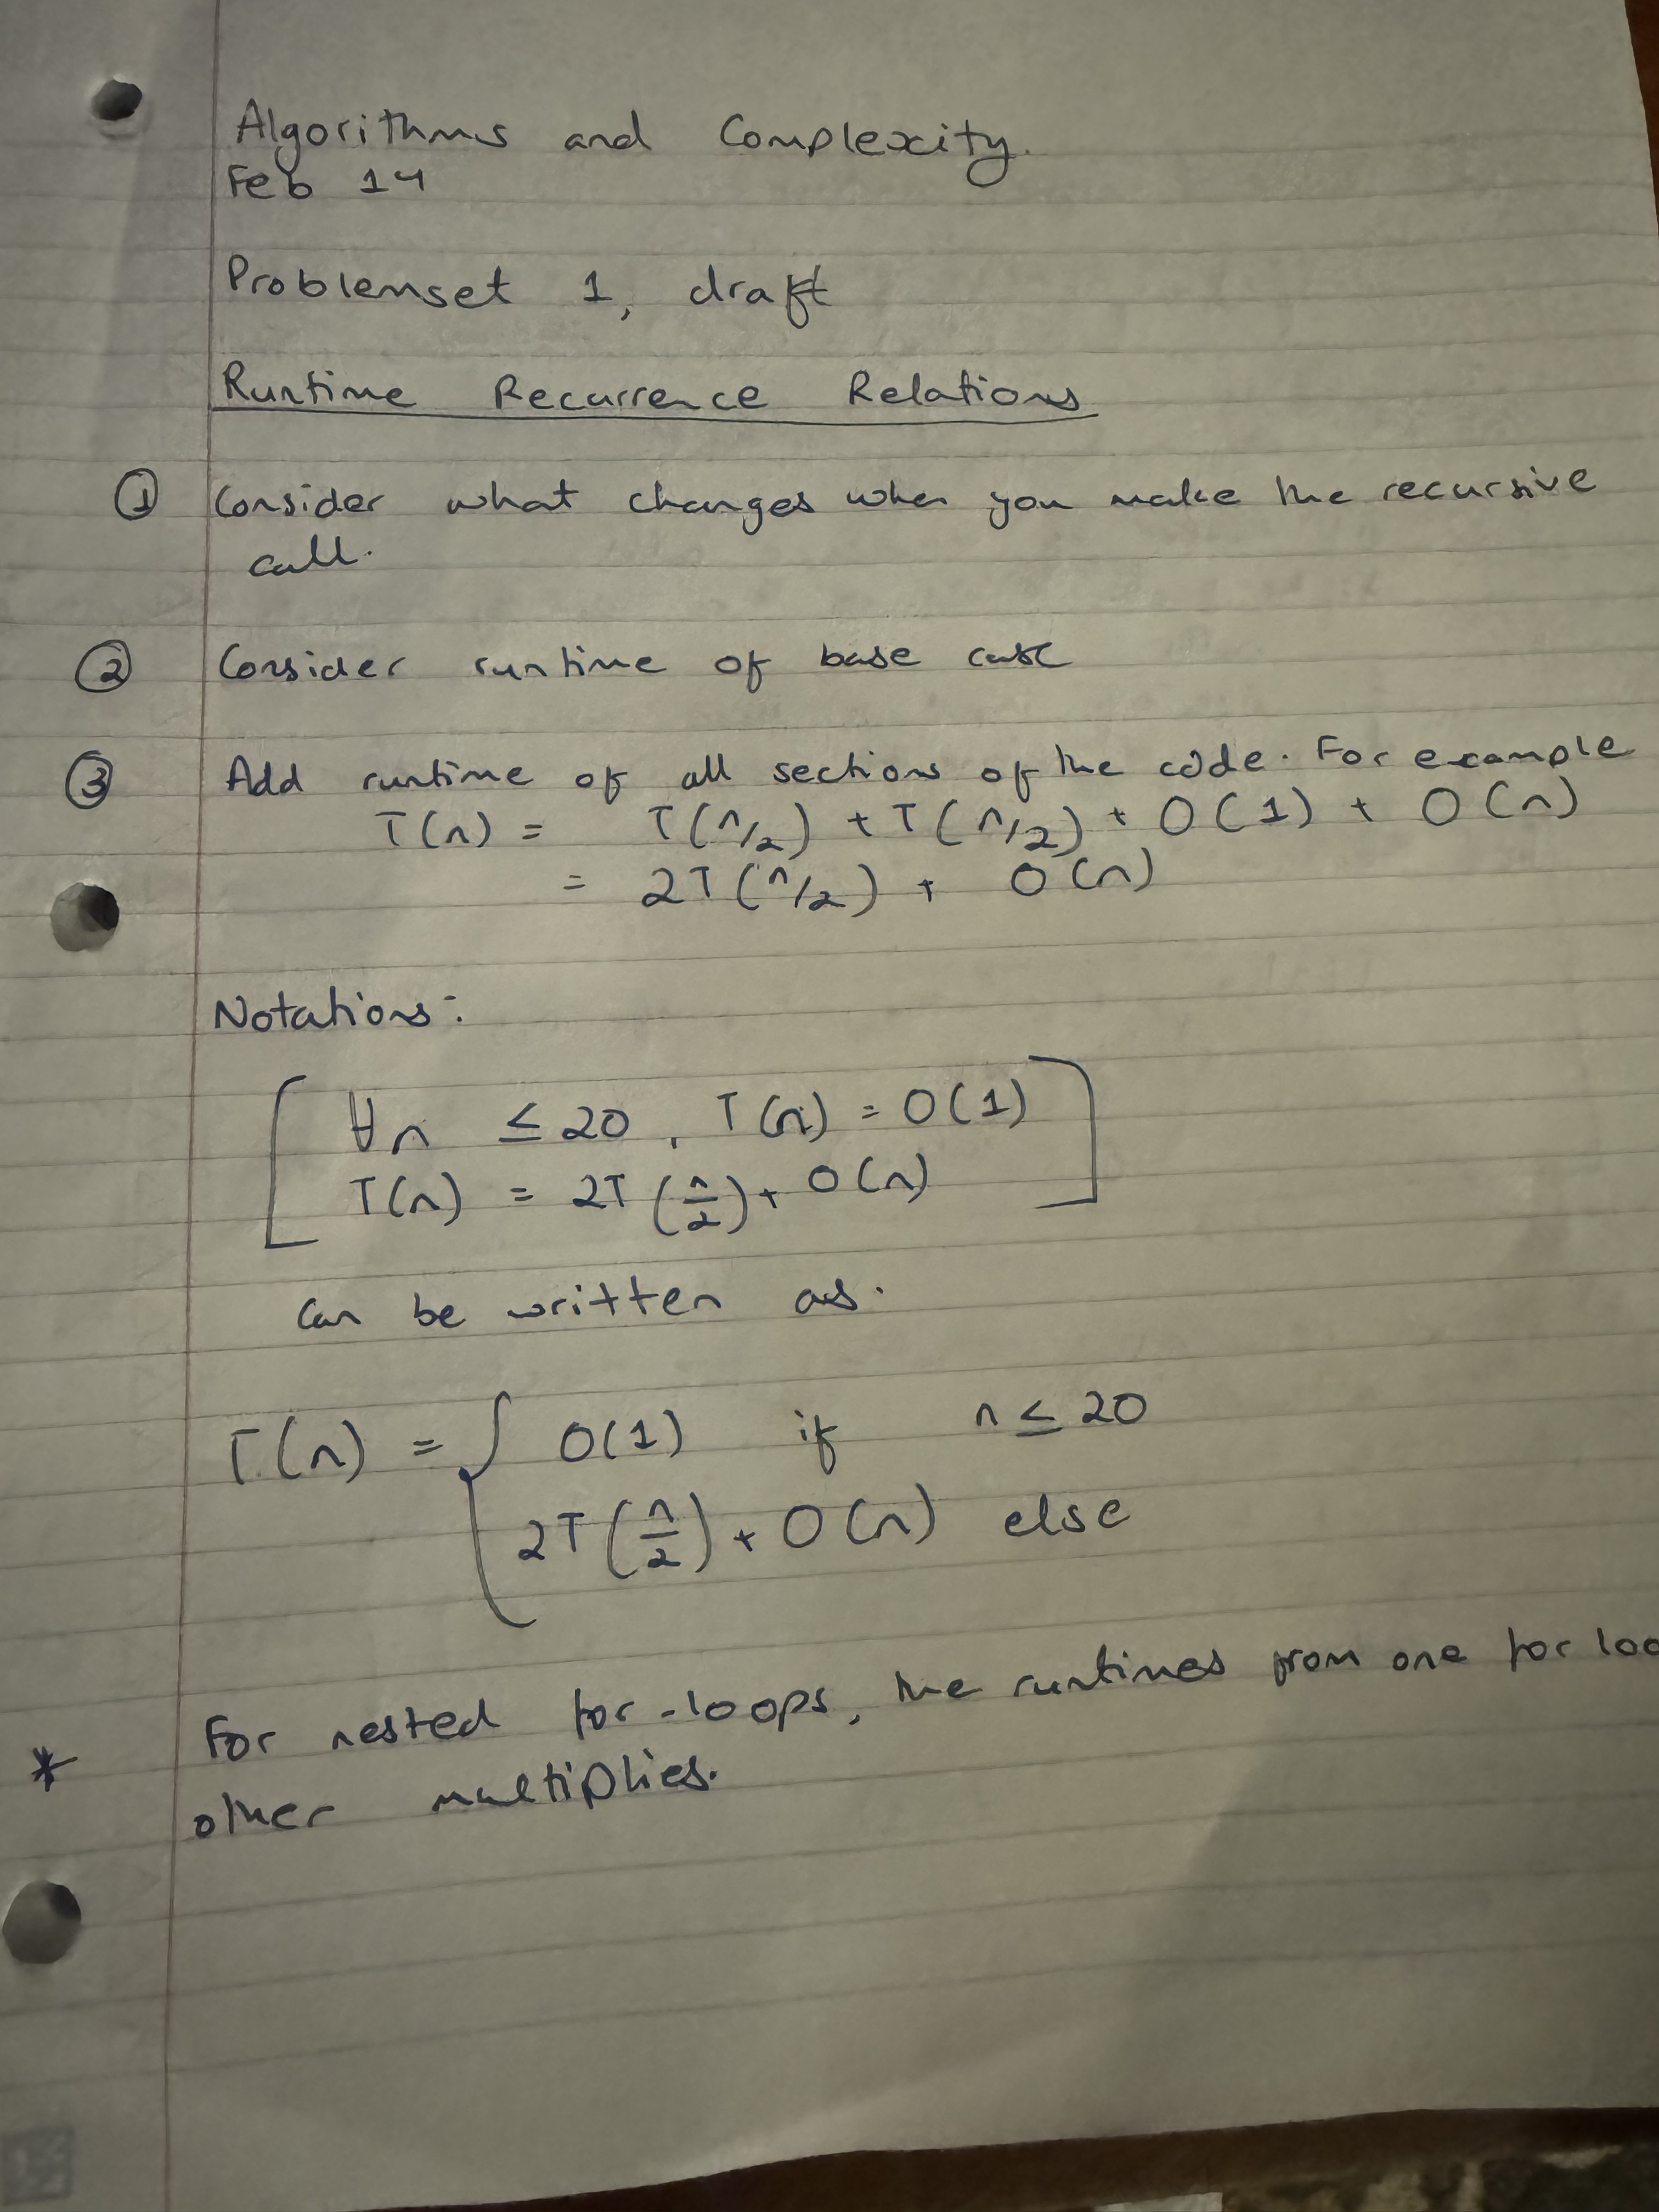 Algorithms and Complexity.
Feb 14
Problemset 1, draft
Runtime Recurrence Relations
① Consider what changes when you make the recursive
call.
② Consider runtime of base case
③ Add runtime of all sections of the code. For example
T(n) = T(n/2) + T(n/2) + O(1) + O(n)
= 2T(n/2) + O(n)
Notations:
∀n ≤ 20, T(n) = O(1)
T(n) = 2T(n/2) + O(n)
can be written as.
T(n) = { O(1) if n ≤ 20
2T(n/2) + O(n) else
* For nested for-loops, the runtimes from one for loo
other multiplies.